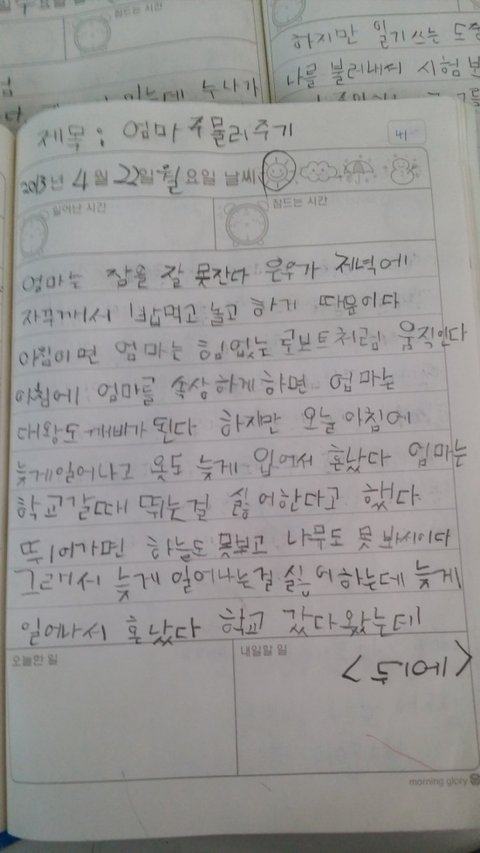 잠드는 시간
하지만 일기쓰는 도
나를 불러내서 시험
는데 누나가
제목 : 엄마 주물러주기
41
2013년 4월 22일 월요일 날씨
일어난 시간
잠드는 시간
엄마는 잠을 잘 못잔다 은우가 저녁에
자꾸깨서 밥먹고 놀고 하기 때문이다
아침이면 엄마는 힘없는 로보트처럼 움직인다
아침에 엄마를 속상하게하면 엄마는
대왕도깨비가 된다 하지만 오늘아침에
늦게일어나고 옷도 늦게 입어서 혼났다 엄마는
학교갈때 뛰는걸 싫어한다고 했다
뛰어가면 하늘도 못보고 나무도 못 봐서이다
그래서 늦게 일어나는걸 싫어하는데 늦게
일어나서 혼났다 학교 갔다왔는데
오늘한 일
내일할 일
morning glory